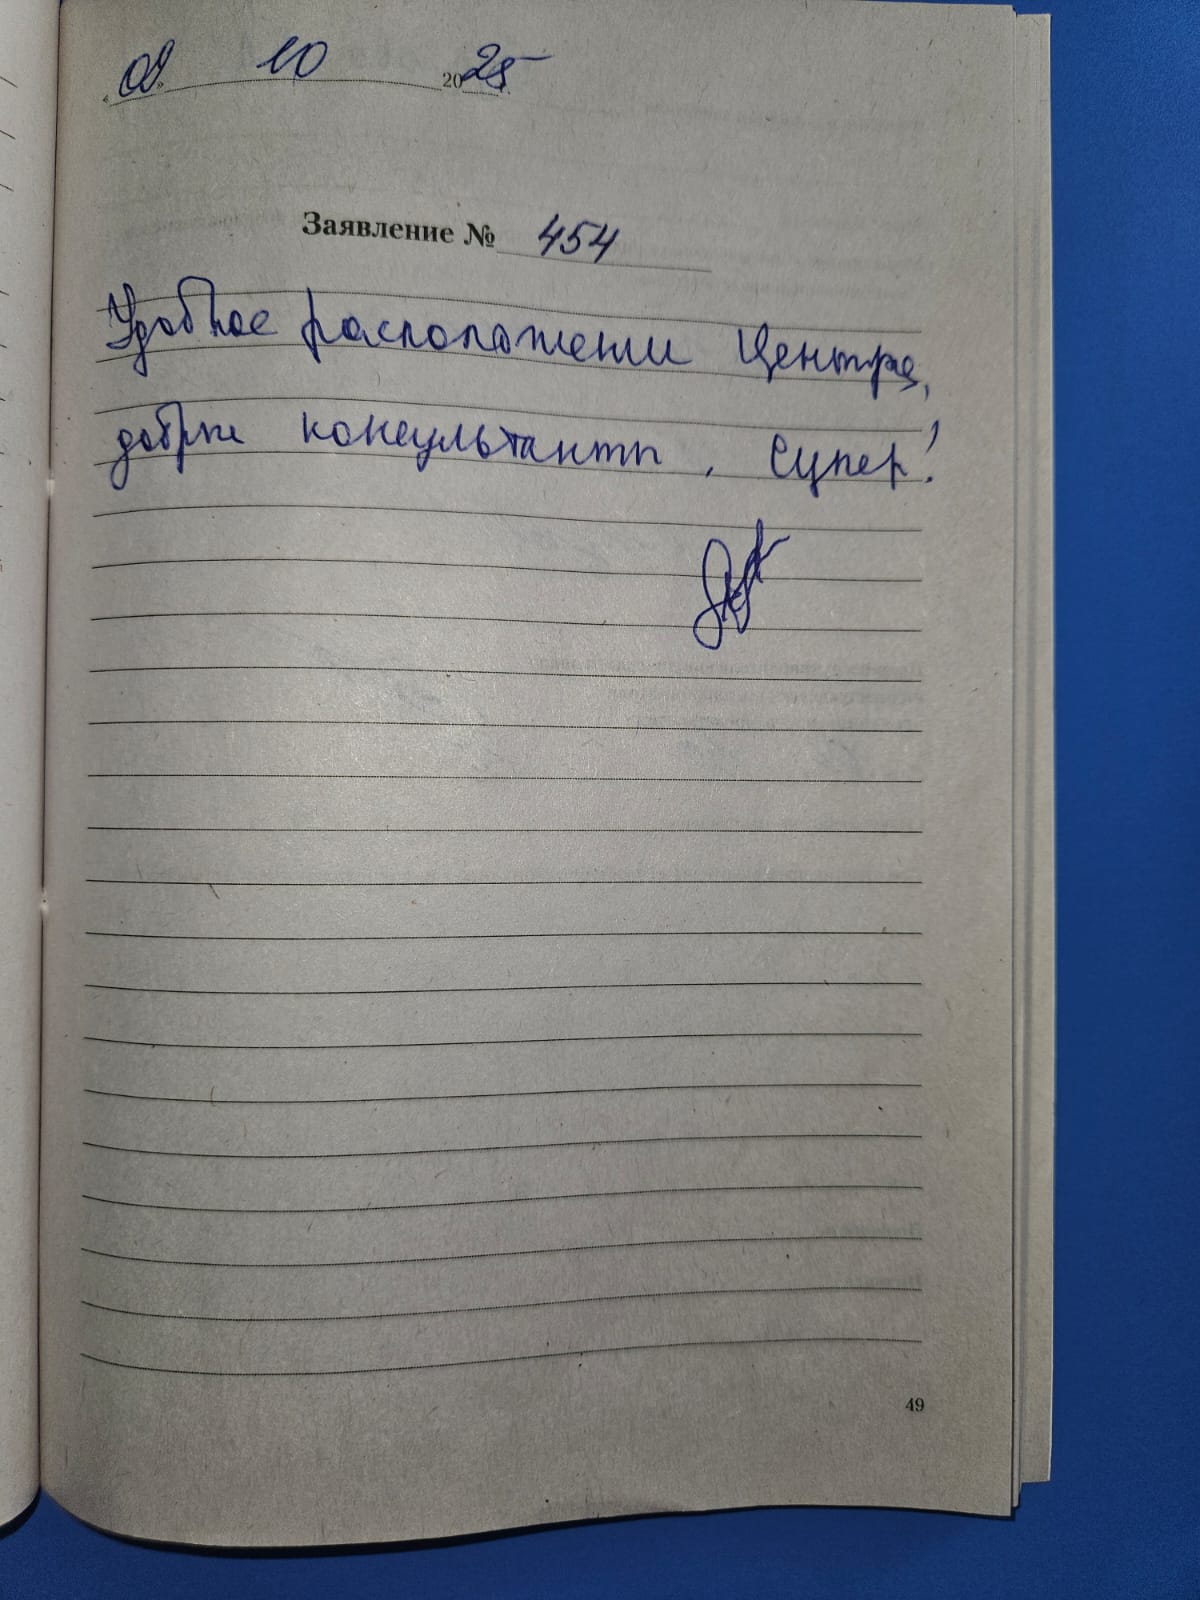 « 09 » 10 2025
Заявление № 454
Удобное расположении Центра,
добрые консультанты. Супер!
49